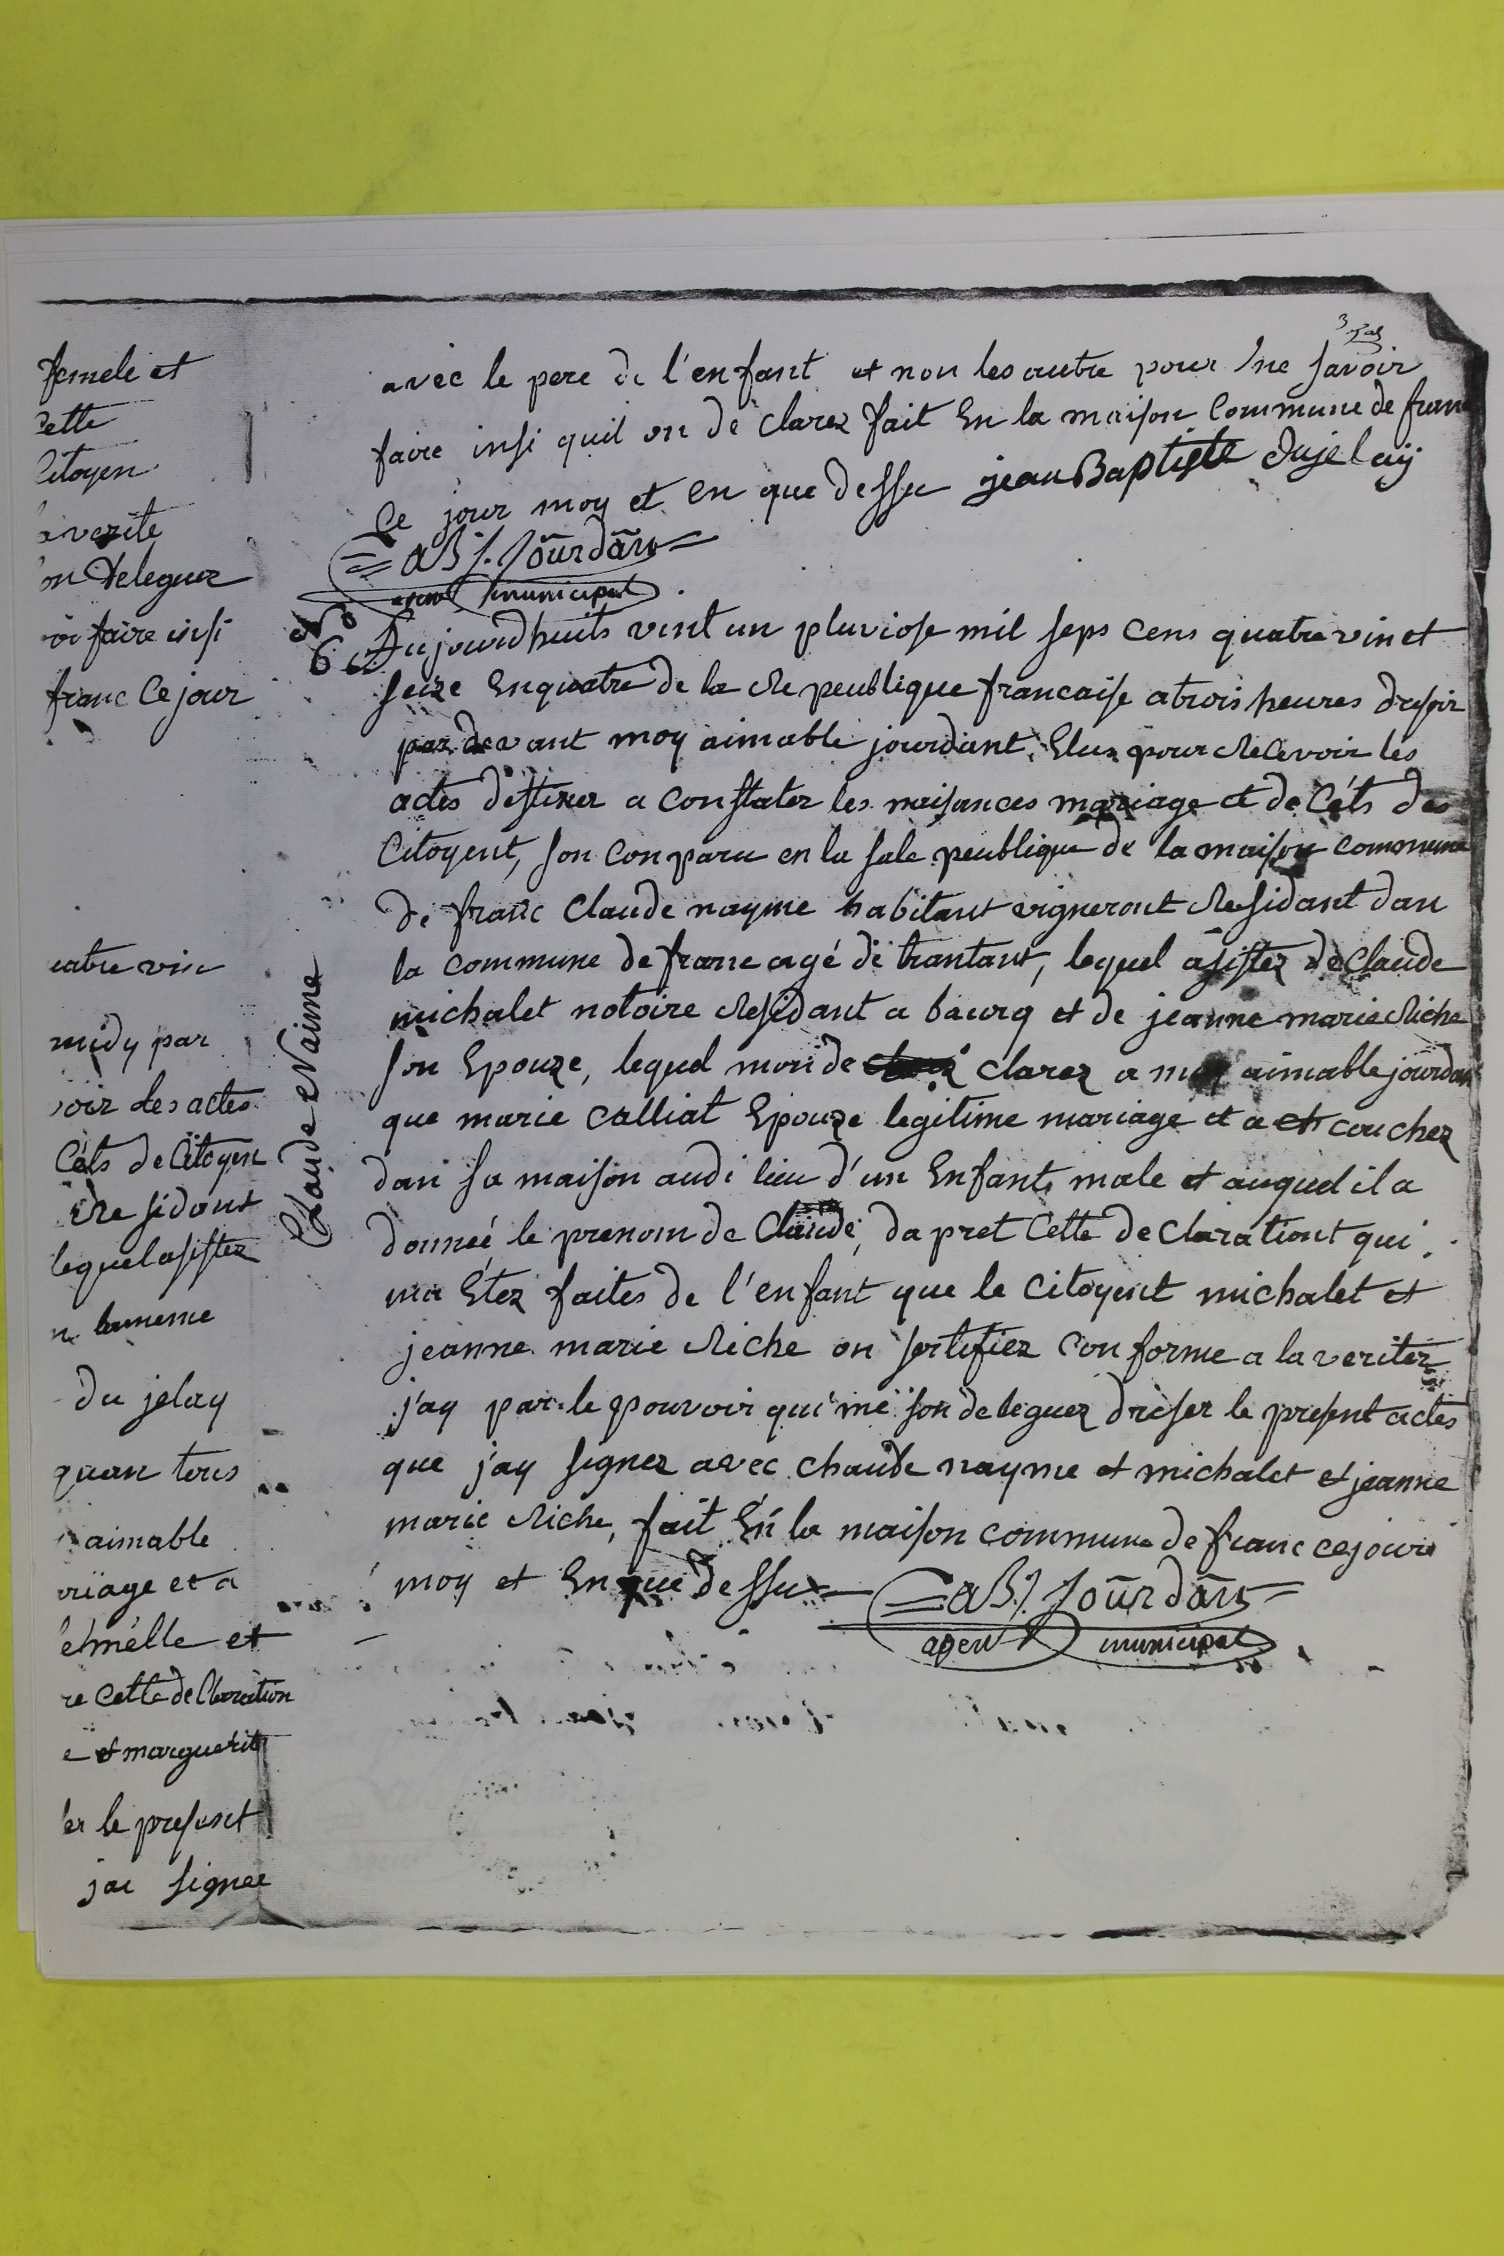 femele et
Cette
Citoyen
la verite
on deleguer
oir faire insi
franc Ce jour
uatre vin
midy par
voir les actes
Céts de Citoyen
Residant
lequel asister
n lameme
du jelay
quan tous
aimable
riage et a
et
re cette declaration
e et marguerite
er le present
jai signer
3
avec le pere de l'enfant et non les autre pour ne savoir
faire insi quil on de clarez fait En la maison Commune de franc
Ce jour moy et en que dessu jean Baptiste dujelaij
= aB J. Joūrdān =
agent municipal
No
6 Aujourdhuits vint un pluviose mil seps cens quatre vin et
seize En quatre de la Re peublique francaise a trois heures dusoir
par devant moy aimable jourdant, Eluz pour Recevoir les
actes destiner a constater les naisances mariage et de Céts des
Citoyent, son conparu en la sale peublique de la maison commune
de franc Claude nayme habitant vigneront Residant dan
la commune de franc agé de trantant, lequel asister de Claude
michalet notoire Residant a bourg et de jeanne marie Riche
son Epouze, lequel mon de clarez a moy aimable jourdan
que marie Calliat Epouze legitime mariage et a et couchez
dan sa maison audi lieu d'un Enfant male et auquel il a
donneé le prenom de Claude, da pret Cette de Clarationt qui
ma Étez faites de l'enfant que le Citoyent michalet et
jeanne marie Riche on sertifiez Conforme a la veritez
j'ay par le pouvoir qui me son deleguez dreser le present actes
que j'ay signez avec Claude nayme et michalet et jeanne
marie Riche, fait En la maison commune de franc ce jour
moy et En que dessu
= aB J. Joūrdān =
agent municipal
Claude Naime